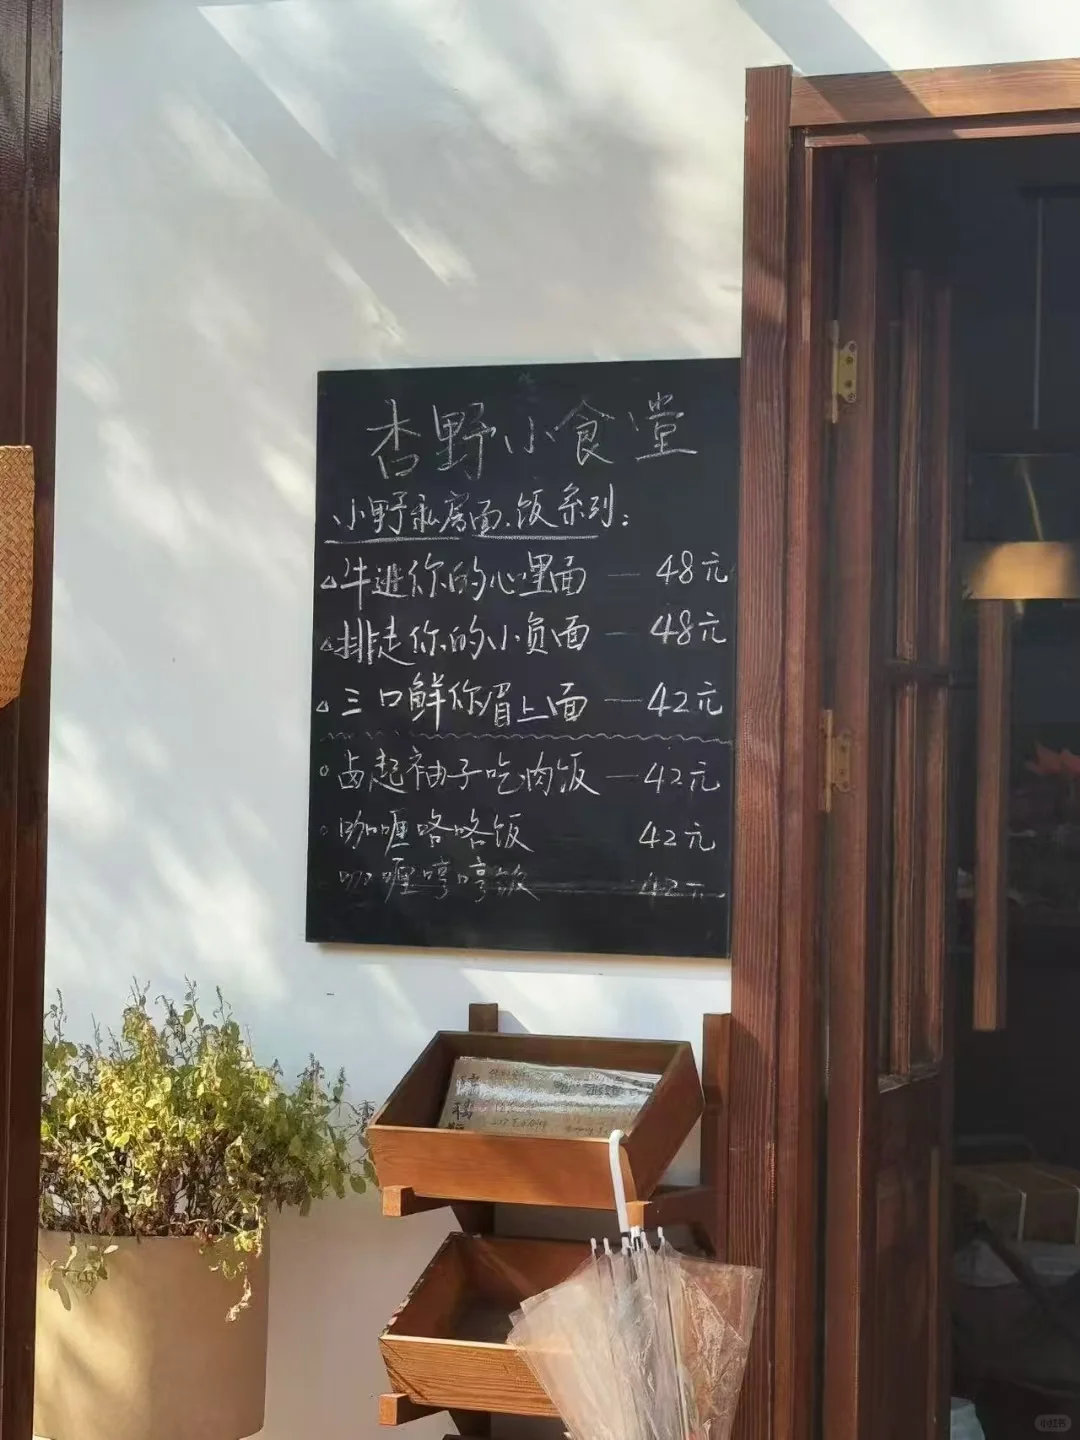 杏野小食堂
小野私房面.饭系列:
△牛逃你的心里面 — 48元
△排走你的小负面 — 48元
△三口鲜你眉上面 — 42元
○卤起袖子吃肉饭 — 42元
○咖喱咯咯饭 42元
咖喱哼哼饭 42元
小红书